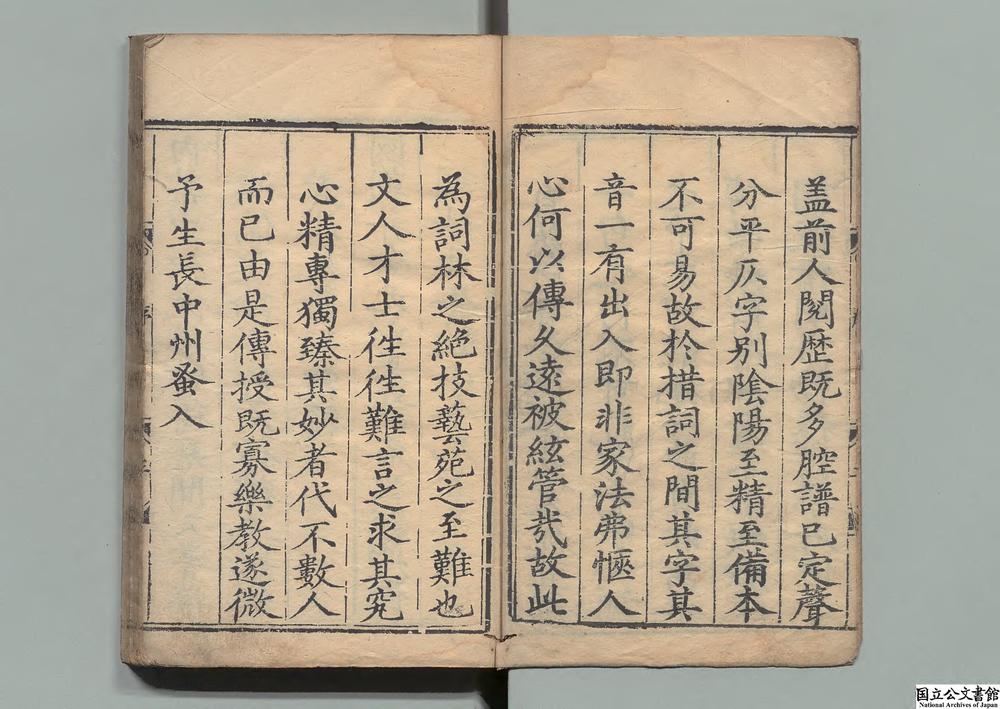 盖前人閱歷既多腔譜已定聲
分平仄字别隂陽至精至備本
不可易故於措詞之間其字其
音一有出入即非家法弗愜人
心何以傳久遠被絃管㢤故此
為詞林之絶技藝苑之至難也
文人才士徃徃難言之求其究
心精專獨臻其妙者代不數人
而已由是傳授既寡樂教遂微
予生長中州蚤入
国立公文書館
National Archives of Japan